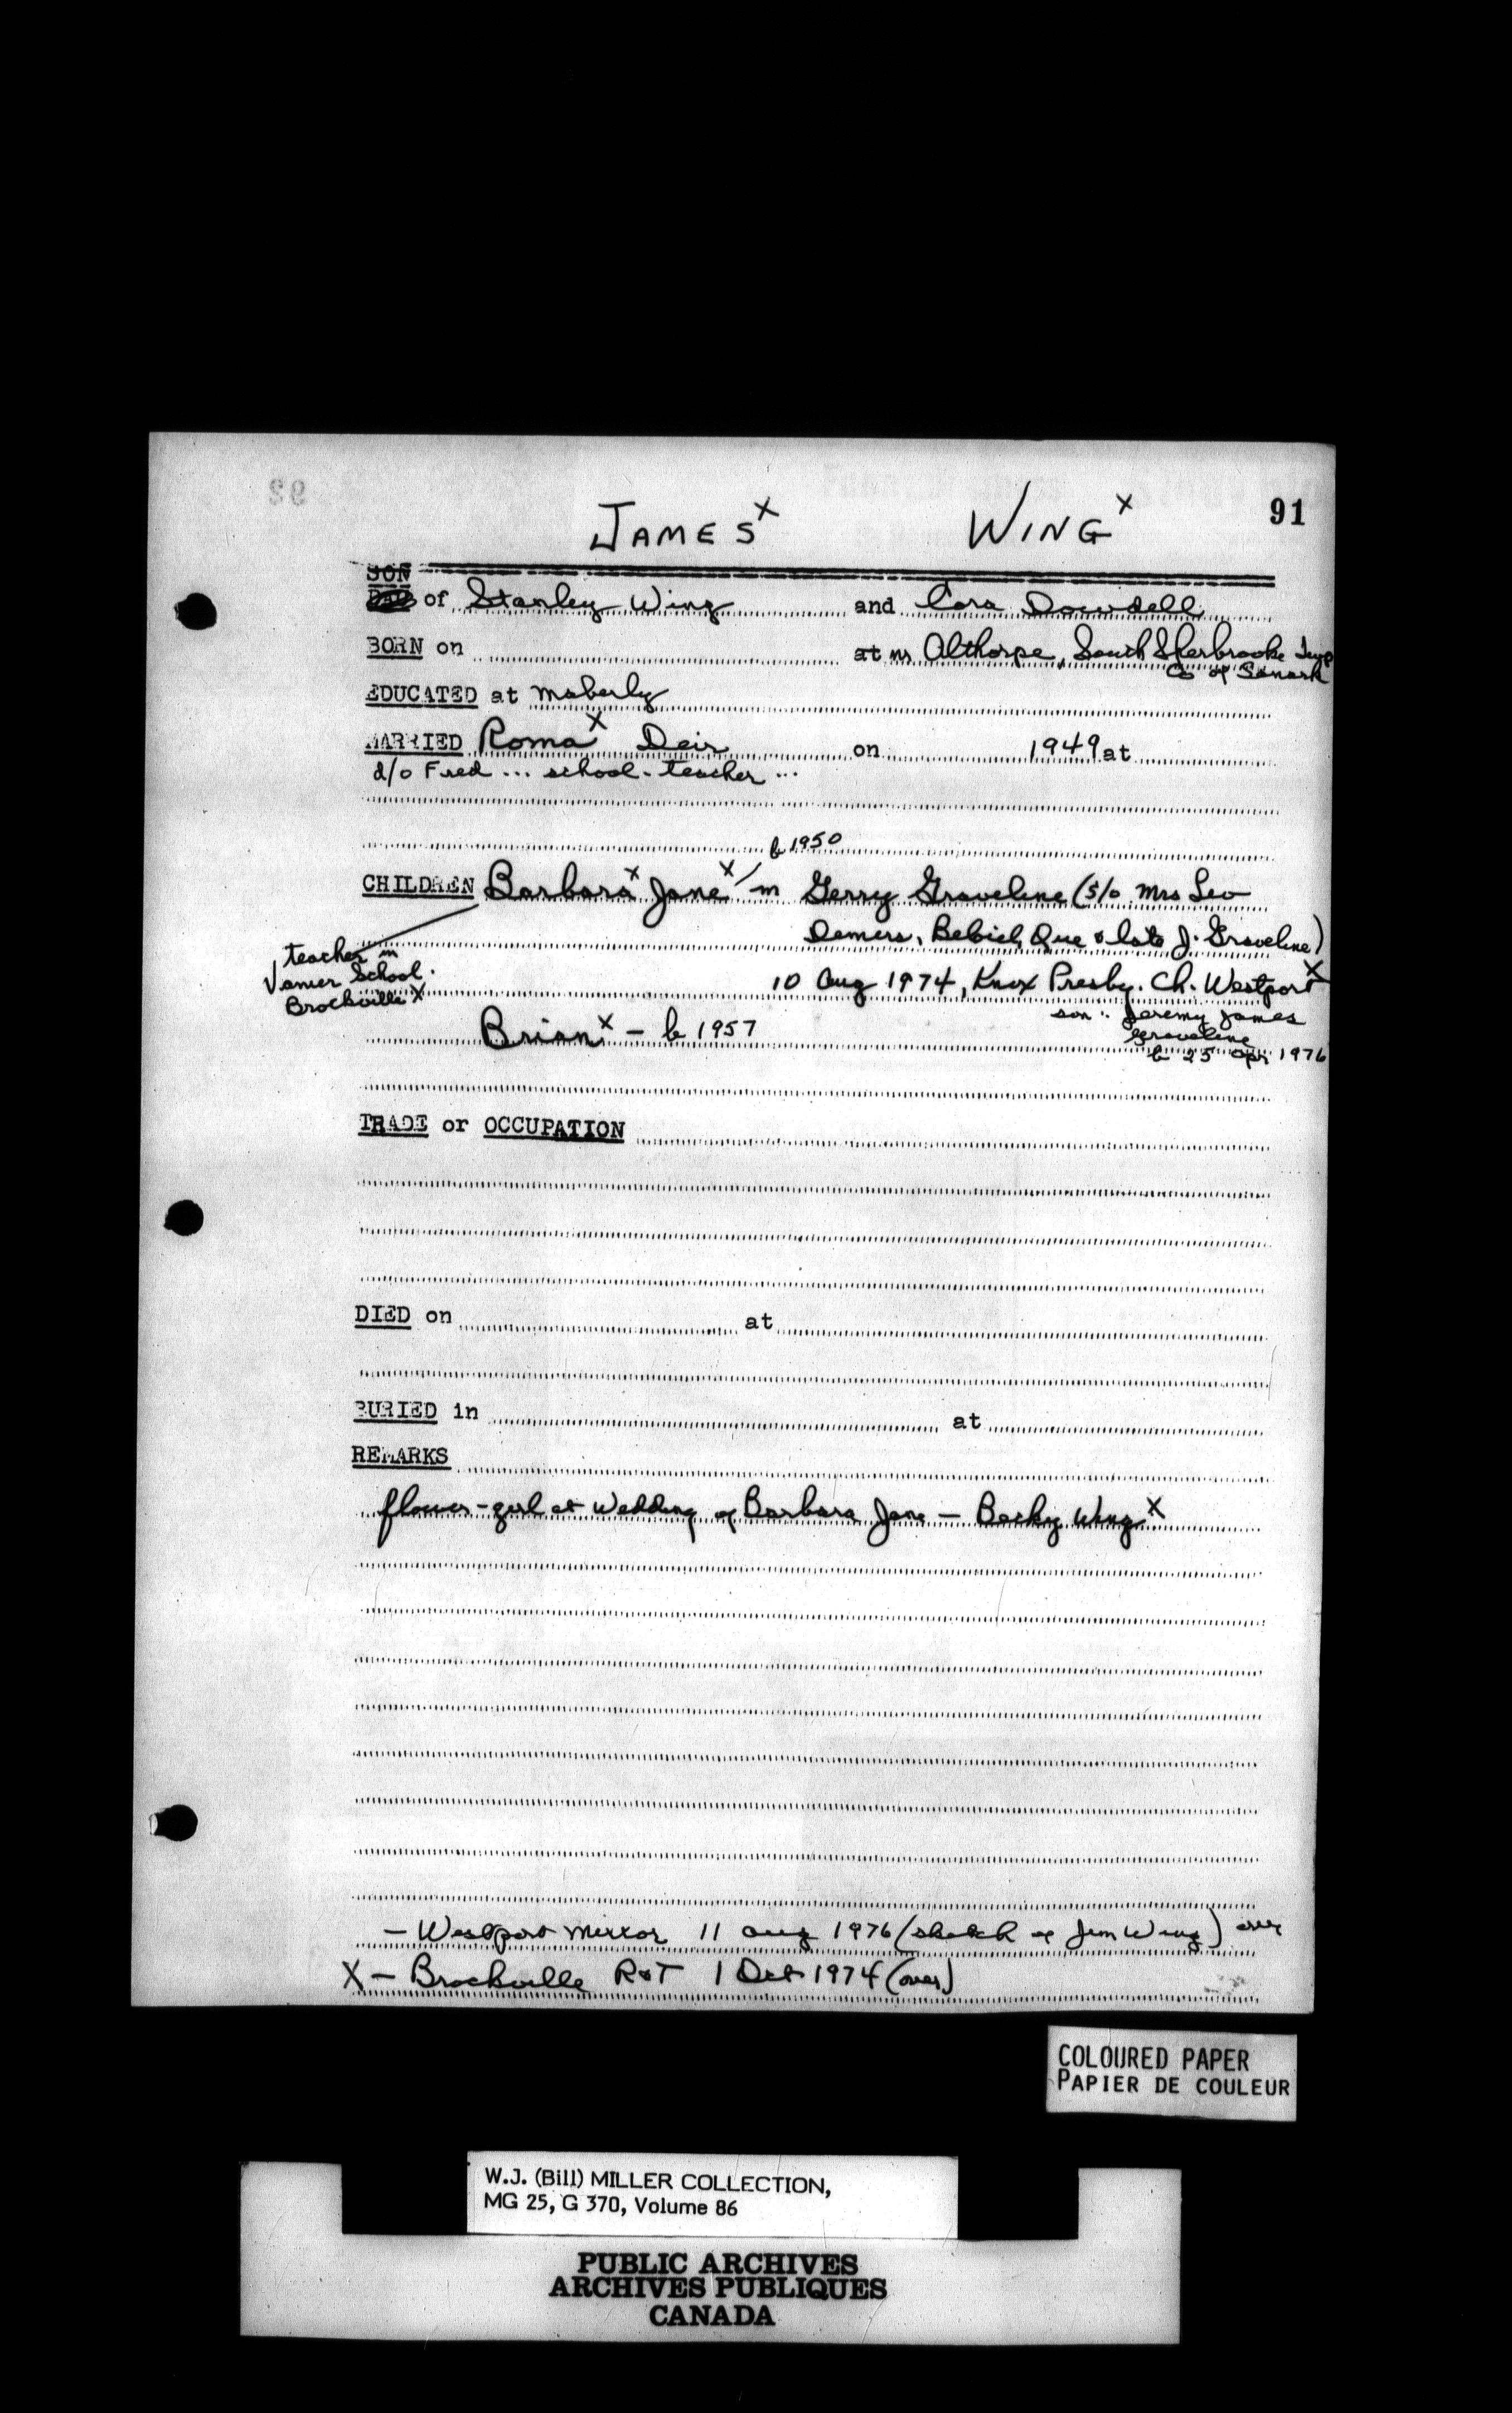 92
91
JAMES X WING X
SON
DAU of Stanley Wing and Cora Dowdell
BORN on at nr Althorpe, South Sherbrooke Twp
Co of Lanark
EDUCATED at Maberly
MARRIED Roma X Deir on 1949 at
d/o Fred ... school-teacher ...
b 1950
CHILDREN Barbara X Jane X m Gerry Graveline (s/o Mrs Leo
Demers, Québec & late J. Graveline)
teacher in
Vanier School.
Brockville X
10 Aug 1974, Knox Presby. Ch. Westport X
son: Jeremy James
Graveline
b 25 Apr 1976
Brian X - b 1957
TRADE or OCCUPATION
DIED on at
BURIED in at
REMARKS
flower-girl at wedding of Barbara Jane - Becky Wing X
- Westport Mirror 11 Aug 1976 (sketch of Jim Wing) over
X - Brockville R&T 1 Oct 1974 (over)
COLOURED PAPER
PAPIER DE COULEUR
W.J. (Bill) MILLER COLLECTION,
MG 25, G 370, Volume 86
PUBLIC ARCHIVES
ARCHIVES PUBLIQUES
CANADA